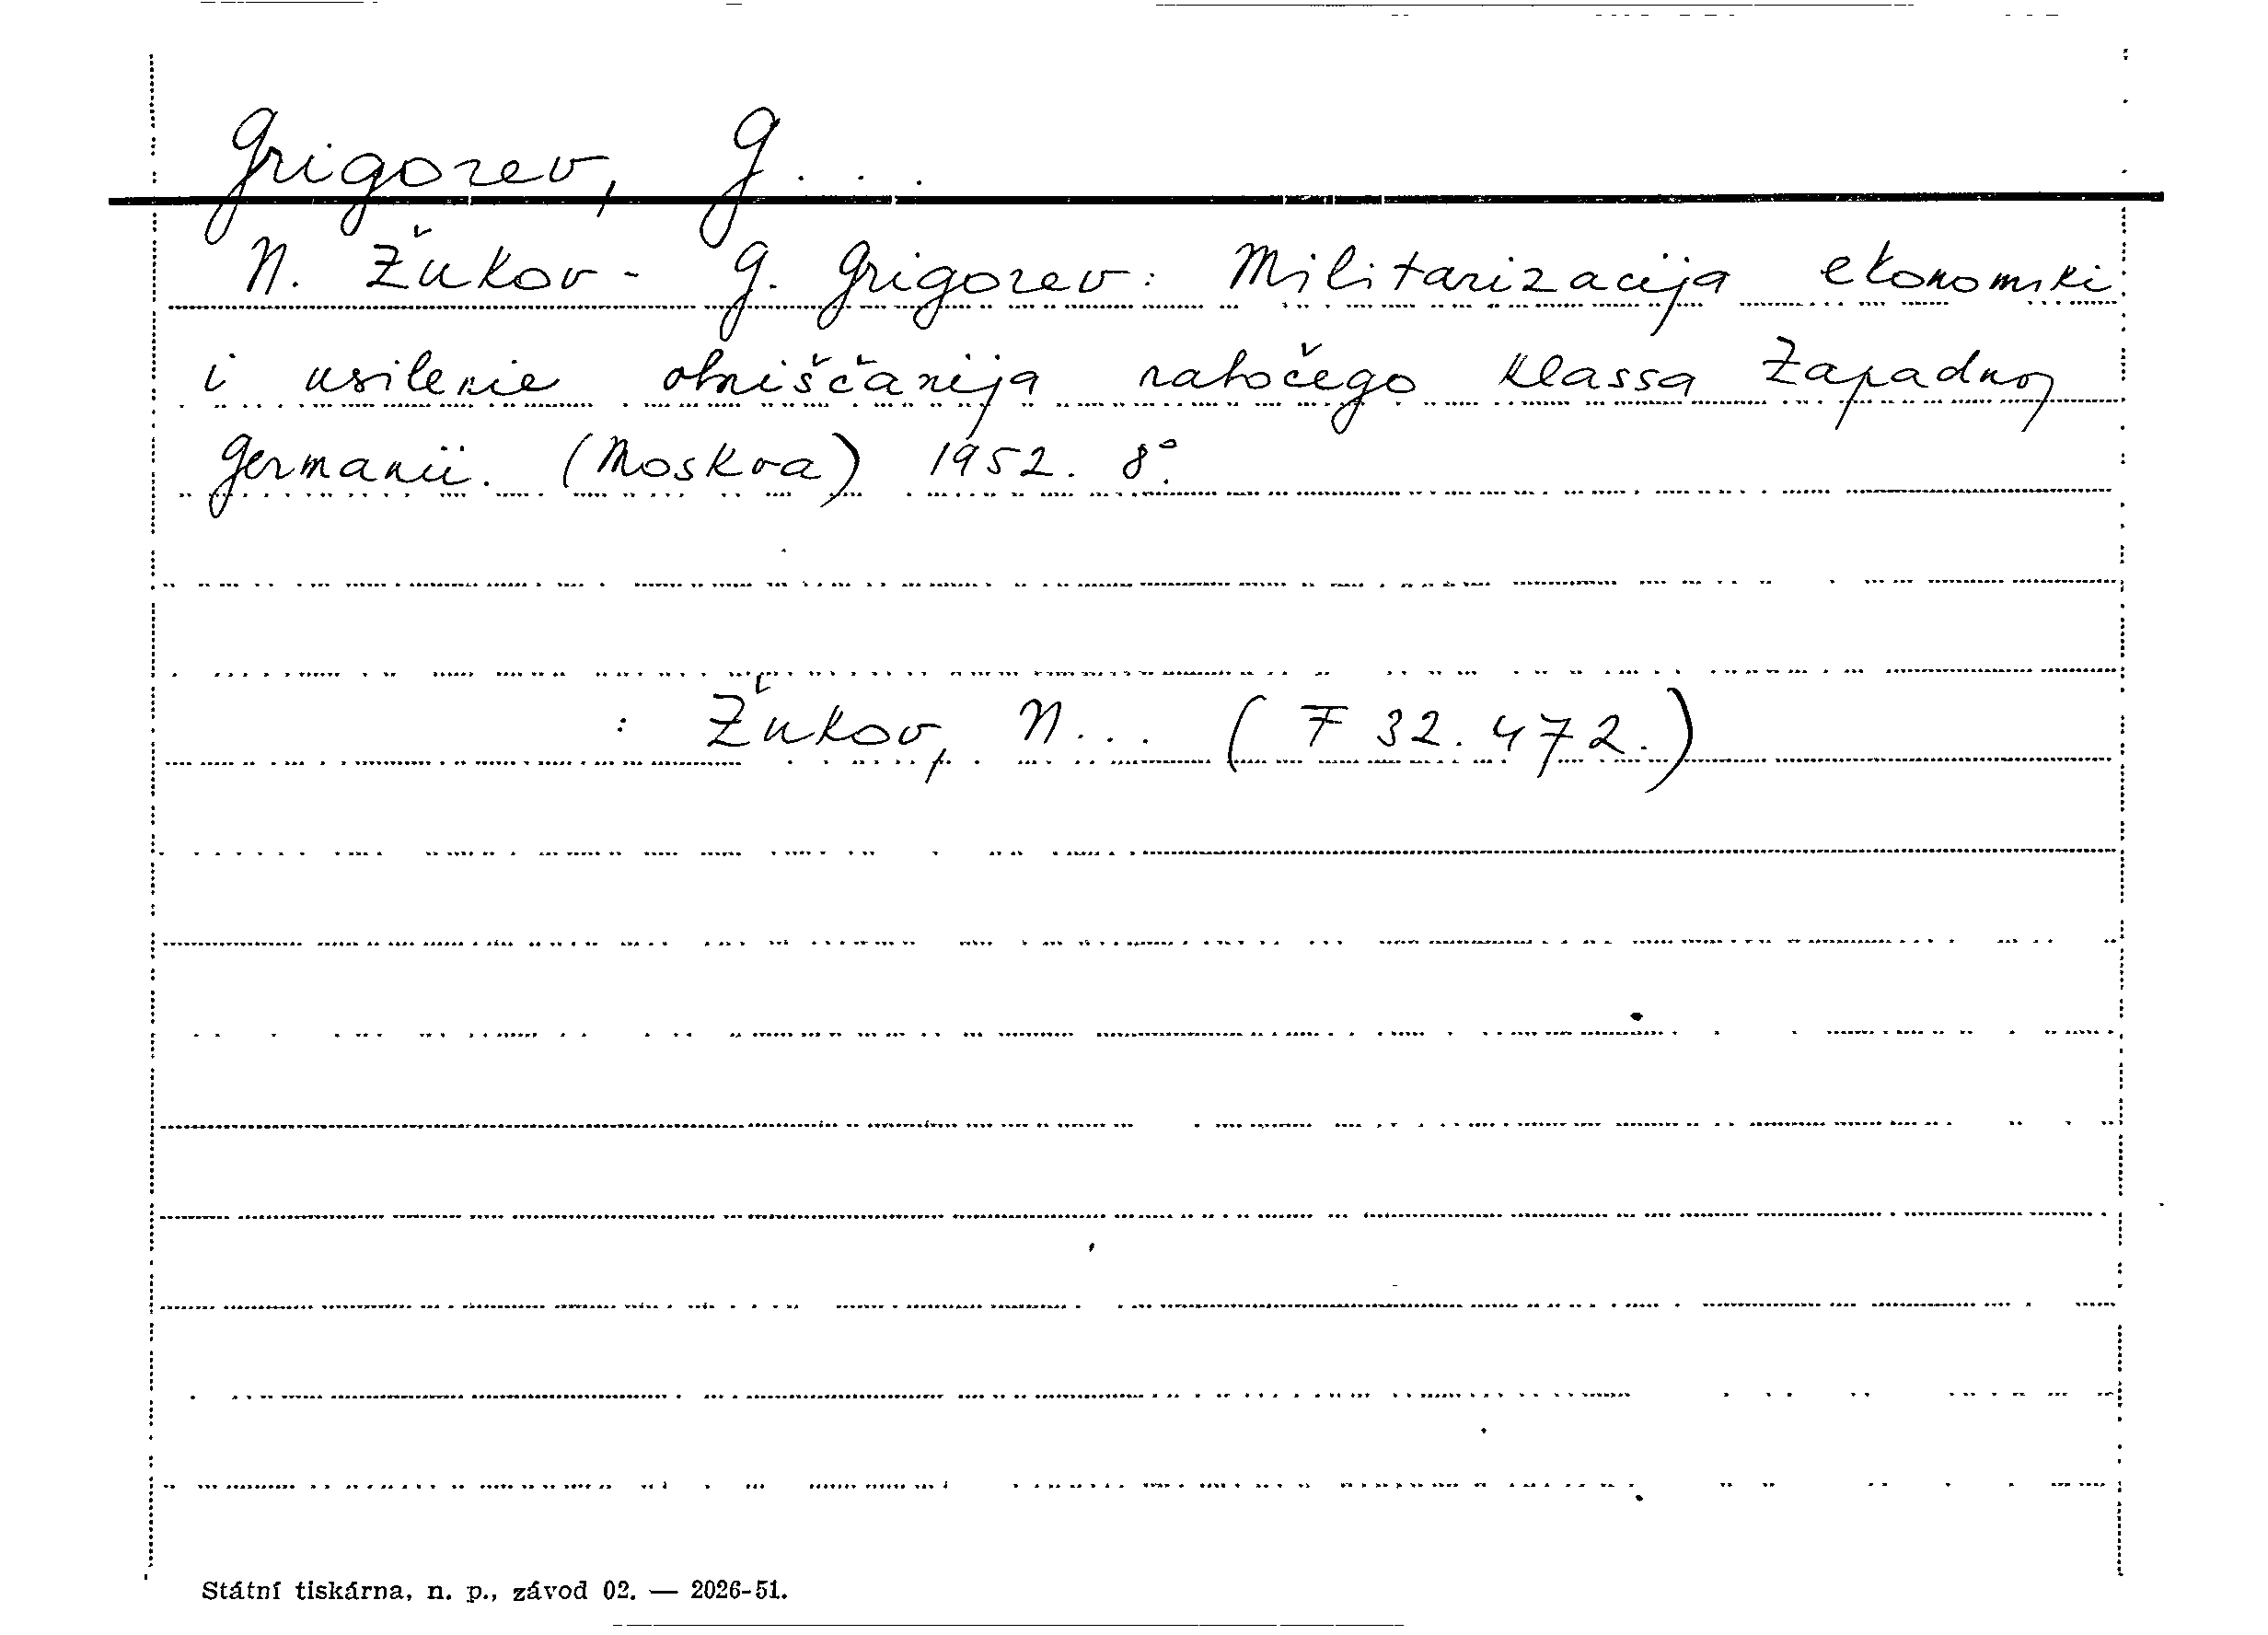 Grigorev, G...
N. Žukov - G. Grigorev: Militarizacija ekonomiki
i usilenie obniščanija rabočego klassa Zapadnoj
Germanii. (Moskva) 1952. 8°.
: Žukov, N... (F 32.472.)
Státní tiskárna, n. p., závod 02. — 2026-51.